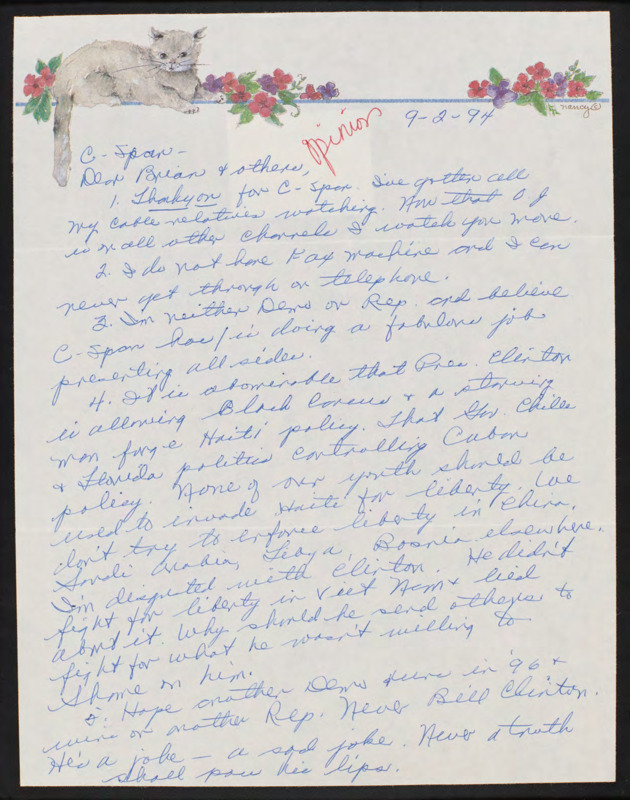 nancy
Opinion
9-2-94
C-Span -
Dear Brian & others,
1. Thank you for C-Span. I've gotten all
my cable relatives watching. Now that O J
is on all other channels I watch you more.
2. I do not have Fax machine and I can
never get through on telephone.
3. I'm neither Demo or Rep. and believe
C-Span has/is doing a fabulous job
presenting all sides.
4. It is abominable that Pres. Clinton
is allowing Black Caucus & a starving
man forge Haiti policy. That Gov. Chiles
& Florida politics controlling Cuban
policy. None of our youth should be
used to invade Haiti for liberty. We
don't try to enforce liberty in China,
Saudi Arabia, Libya, Bosnia, elsewhere.
I'm disgusted with Clinton. He didn't
fight for liberty in Viet Nam & lied
about it. Why should he send others to
fight for what he wasn't willing to
Shame on him.
5. Hope another Demo runs in '96 &
wins or another Rep. Never Bill Clinton.
He's a joke - a sad joke. Never a truth
shall pass his lips.